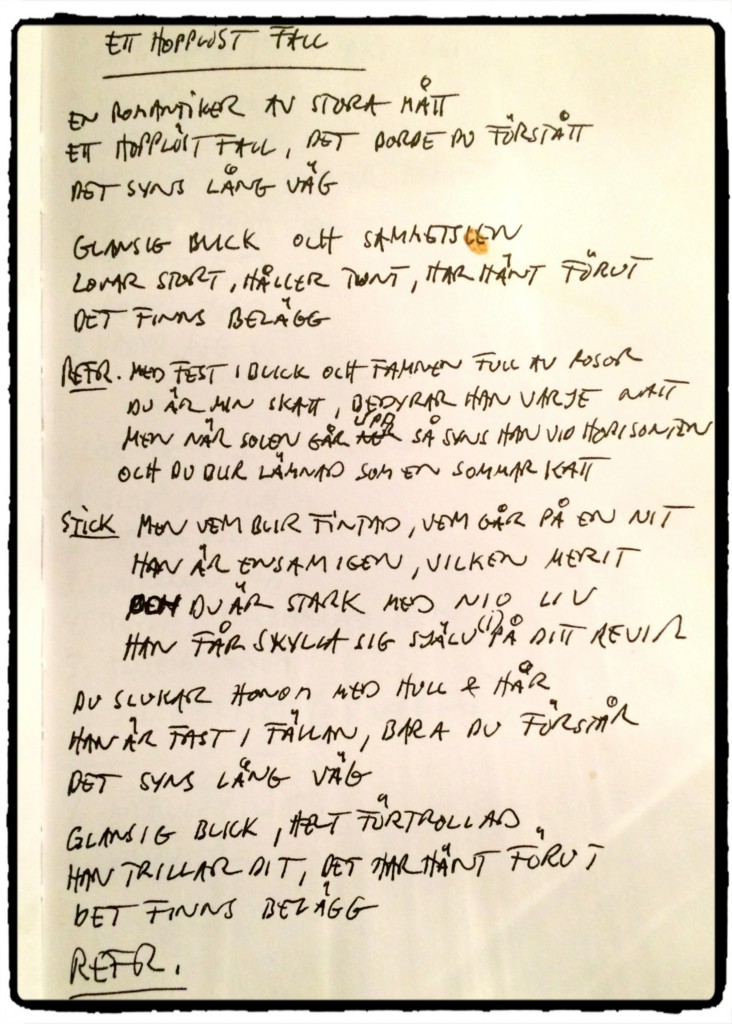 ETT HOPPLÖST FALL
EN ROMANTIKER AV STORA MÅTT
ETT HOPPLÖST FALL, DET BORDE DU FÖRSTÅTT
DET SYNS LÅNG VÄG
GLANSIG BLICK OCH SAMMETSLEN
LOVAR STORT, HÅLLER TUNT, HAR HÄNT FÖRUT
DET FINNS BELÄGG
REFR. MED FEST I BLICK OCH FAMNEN FULL AV ROSOR
DU ÄR MIN SKATT, BEDYRAR HAN VARJE NATT
MEN NÄR SOLEN GÅR UPP SÅ SYNS HAN VID HORISONTEN
OCH DU BLIR LÄMNAD SOM EN SOMMARKATT
STICK MEN VEM BLIR FINTAD, VEM GÅR PÅ EN NIT
HAN ÄR ENSAM IGEN, VILKEN MERIT
DU ÄR STARK MED NIO LIV
HAN FÅR SKYLLA SIG SJÄLV (I) PÅ DITT REVIR
DU SLUKAR HONOM MED HULL & HÅR
HAN ÄR FAST I FÄLLAN, BARA DU FÖRSTÅR
DET SYNS LÅNG VÄG
GLANSIG BLICK, HELT FÖRTROLLAD
HAN TRILLAR DIT, DET HAR HÄNT FÖRUT
DET FINNS BELÄGG
REFR.